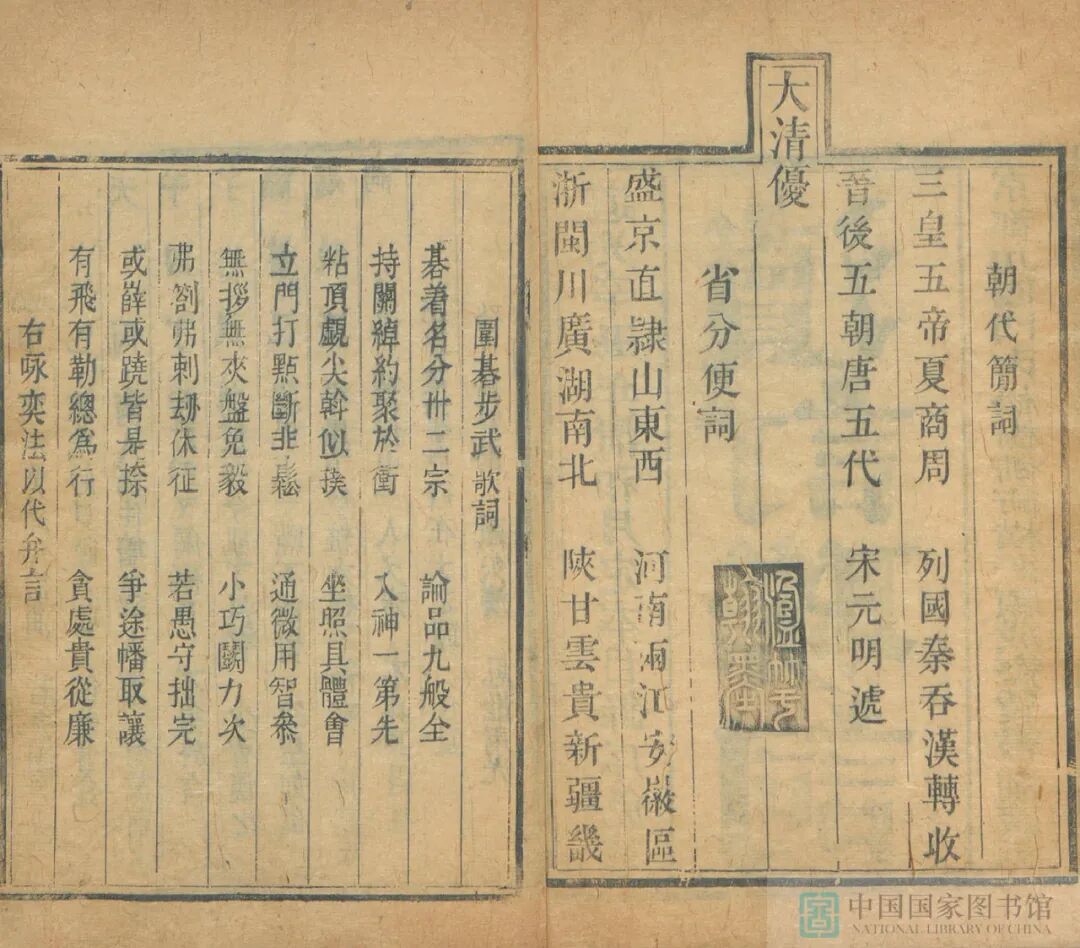 朝代簡詞
三皇五帝夏商周　列國秦吞漢轉收
晋後五朝唐五代　宋元明遞
大清優
省分便詞
盛京直隷山東西　河南兩江安徽區
浙閩川廣湖南北　陝甘雲貴新疆畿
圍碁步武歌詞
碁着名分卅二宗　論品九般全
持關綽約聚於衝　入神一第先
粘頂覷尖斡似　坐照具體會
立門打點斷非鬆　通微用智叅
無拶無夾盤免毅　小巧鬬力次
弗劄弗刺刼休征　若愚守拙完
或薛或蹺皆是捺　爭途幡取讓
有飛有勒總爲行　貪處貴從廉
右咏奕法以代弁言
中国国家图书馆
NATIONAL LIBRARY OF CHINA